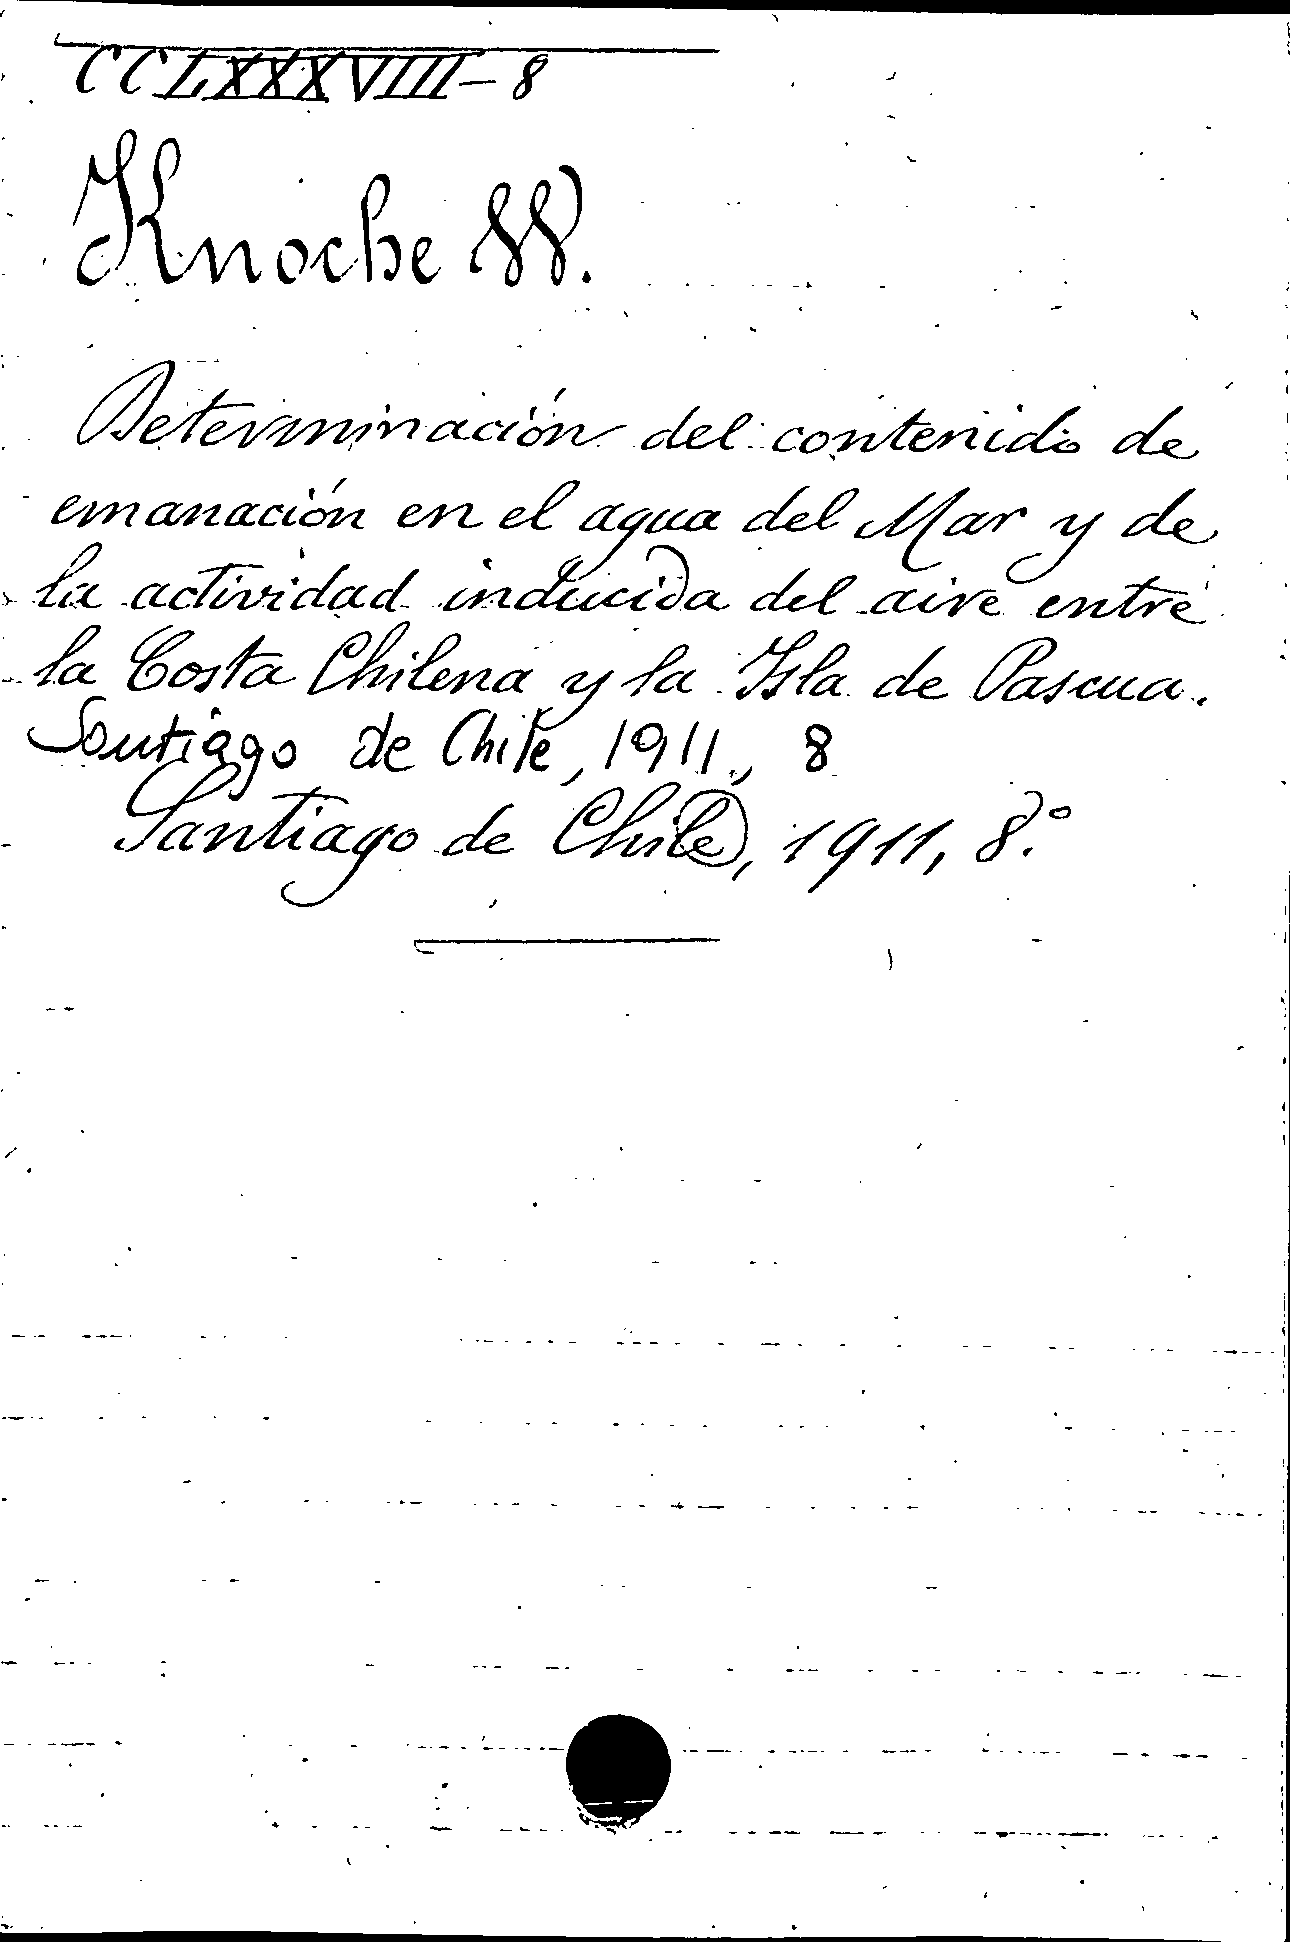 CCLXXXVIII-8
Knoche W.
Determinación del contenido de
emanación en el agua del Mar y de
la actividad inducida del aire entre
la Costa Chilena y la Isla de Pascua.
Santiago de Chile, 1911., 8
Santiago de Chile, 1911, 8.º